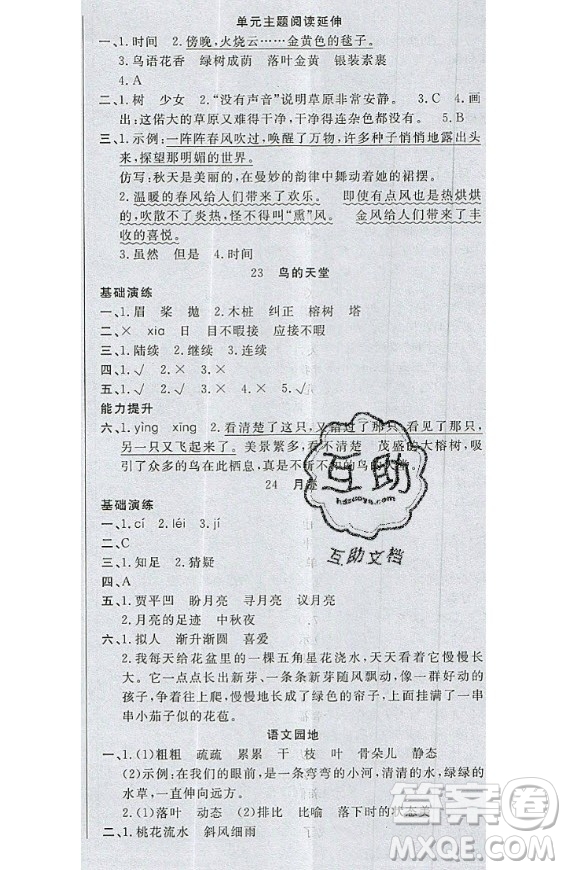 单元主题阅读延伸
一、1.时间　2.傍晚，火烧云……金黄色的毯子。
3.鸟语花香　绿树成荫　落叶金黄　银装素裹
4.A
二、1.树　少女　2.“没有声音”说明草原非常安静。　3.C　4.画
出：这偌大的草原又难得干净，干净得连杂色都没有。　5.B
三、1.示例：一阵阵春风吹过，唤醒了万物，许多种子悄悄地露出头
来，探望那明媚的世界。
仿写：秋天是美丽的，在曼妙的韵律中舞动着她的裙摆。
2.温暖的春风给人们带来了欢乐。　即使有点风也是热烘烘
的，吹散不了炎热，怪不得叫“熏”风。　金风给人们带来了丰
收的喜悦。
3.虽然　但是　4.时间
23　鸟的天堂
基础演练
一、1.眉　桨　抛　2.木桩　纠正　榕树　塔
二、×　xia　日　目不暇接　应接不暇
三、1.陆续　2.继续　3.连续
四、1.√　2.×　3.×　4.√
五、1.√　2.×　3.×　4.×　5.√
能力提升
六、1.yìng　xīng　2.看清楚了这只，又错过了那只，看见了那只，
另一只又飞起来了。　美景繁多　茂盛的大榕树，吸
引了众多的鸟在此栖息，
24　月
基础演练
一、1.cí　2.léi　3.jí
二、C
三、1.知足　2.猜疑
四、A
五、1.贾平凹　盼月亮　寻月亮　议月亮
2.月亮的足迹　中秋夜
六、1.拟人　渐升渐圆　喜爱
2.我每天给花盆里的一棵五角星花浇水，看着它慢慢长
大。它一点点长出新芽、一条条新芽随风飘动，像一群好动的
孩子，争着向上爬，慢慢地长成了绿色的帘子，上面长了一串
串小茄子似的花苞。
语文园地
一、1.(1)粗粗　疏疏　累累　干　枝　叶　骨朵儿　静态
(2)示例：在我们的眼前，是一条弯弯的小河，清清的水，绿绿的
水草，一直伸向远方。
2.(1)落叶　动态　(2)排比　比喻　落下时的状态美
二、1.桃花流水　斜风细雨
互助
hdzuoye.com
互助文档
答案圈
MXQE.COM